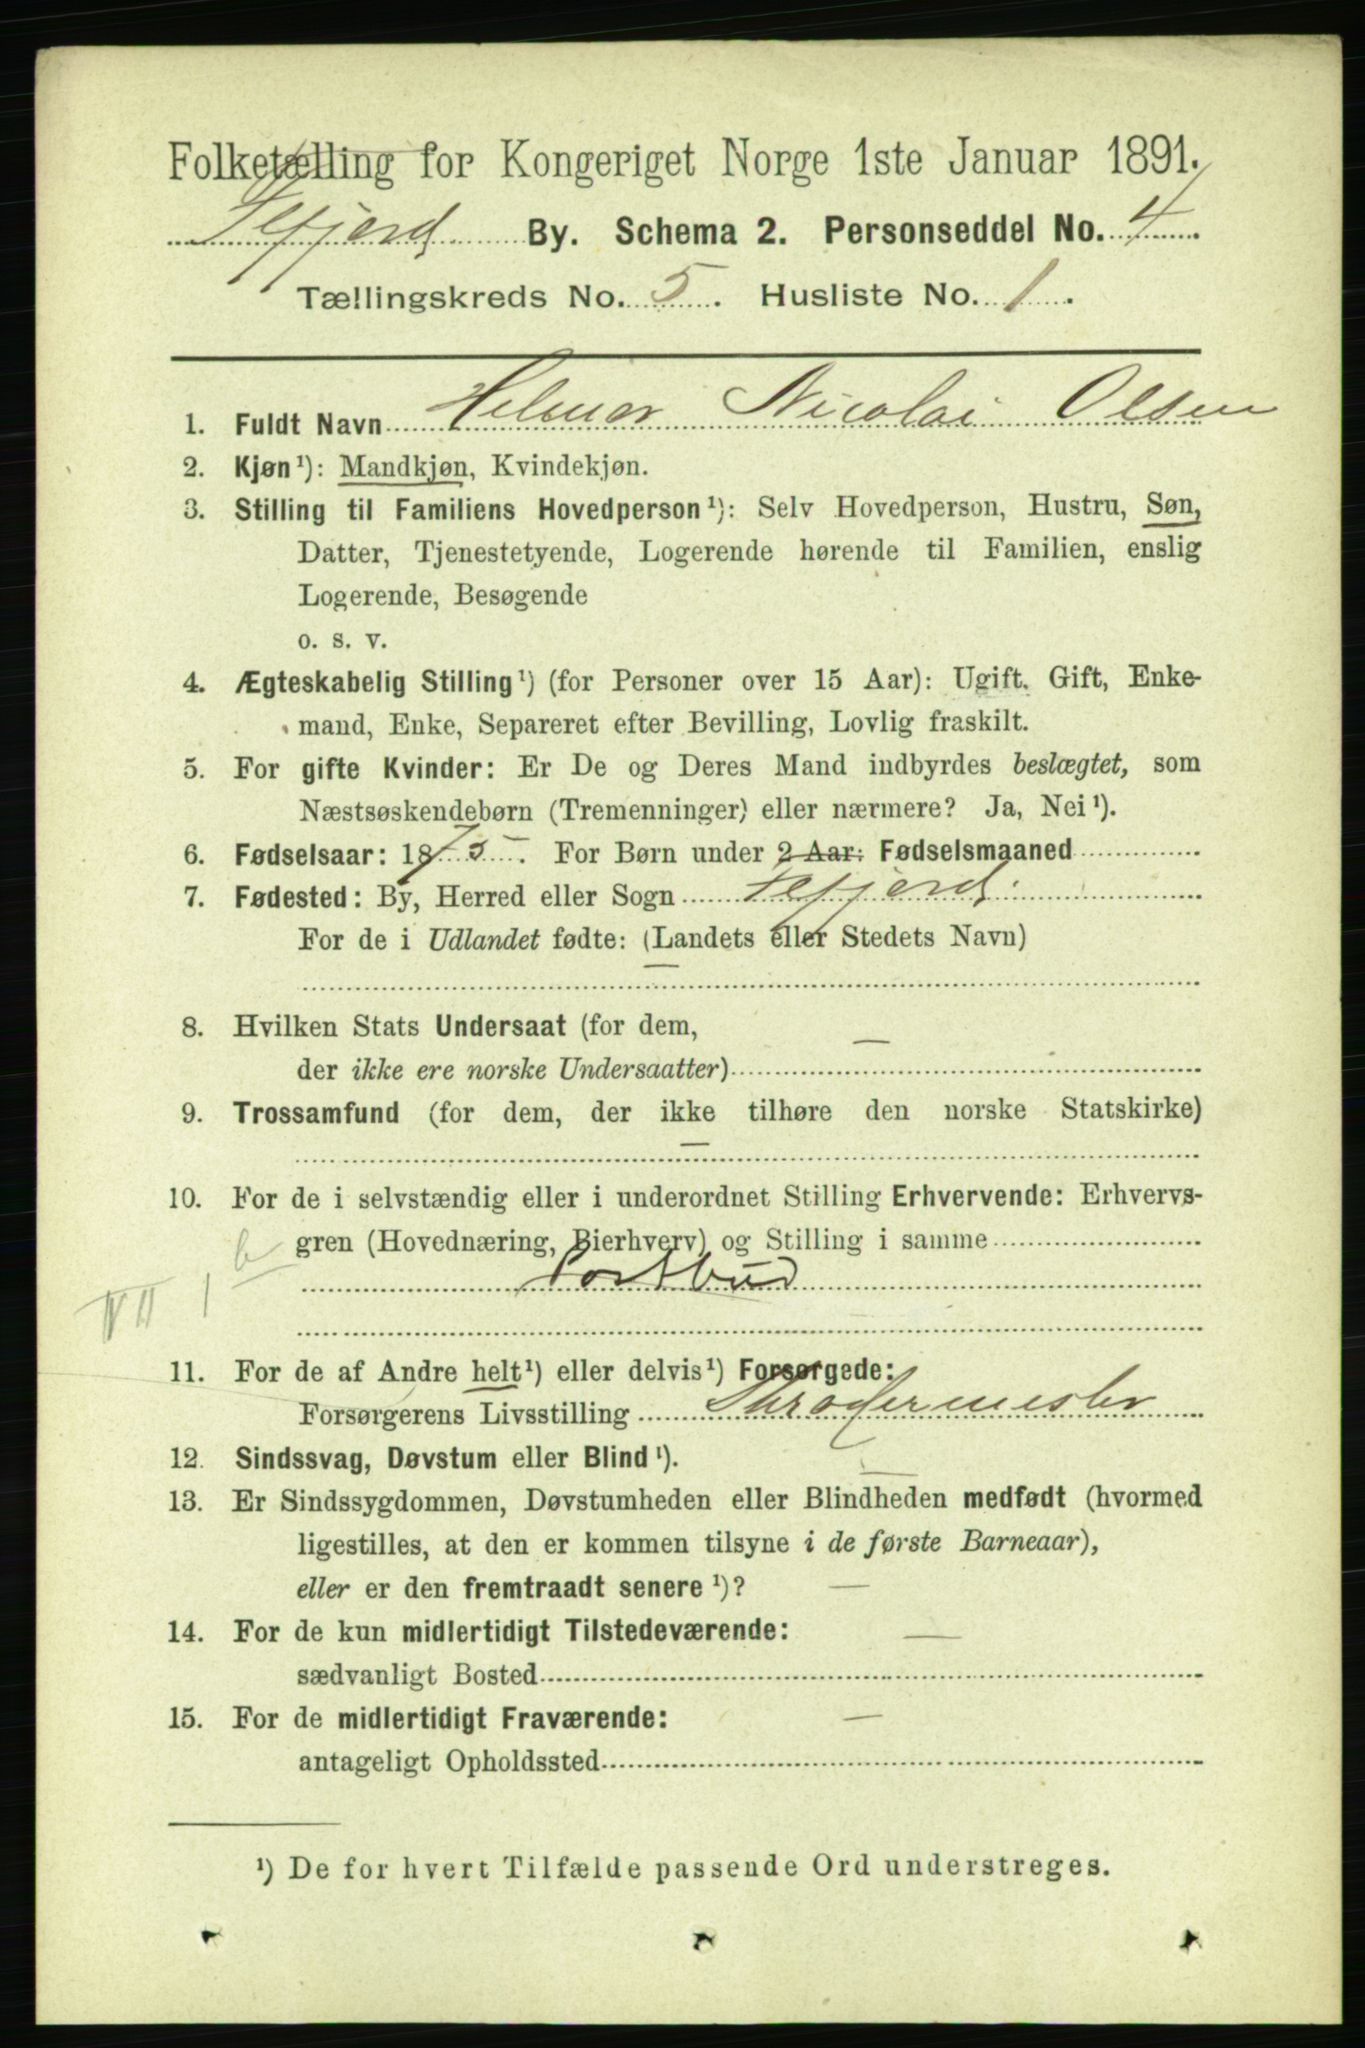 Folketælling for Kongeriget Norge 1ste Januar 1891.
By. Schema 2. Personseddel No. 4
Tællingskreds No. 5. Husliste No. 1.
1. Fuldt Navn Helmer Nicolai Olsen
2. Kjøn ¹): Mandkjøn, Kvindekjøn.
3. Stilling til Familiens Hovedperson ¹): Selv Hovedperson, Hustru, Søn,
Datter, Tjenestetyende, Logerende hørende til Familien, enslig
Logerende, Besøgende
o. s. v.
4. Ægteskabelig Stilling ¹) (for Personer over 15 Aar): Ugift. Gift, Enke-
mand, Enke, Separeret efter Bevilling, Lovlig fraskilt.
5. For gifte Kvinder: Er De og Deres Mand indbyrdes beslægtet, som
Næstsøskendebørn (Tremenninger) eller nærmere? Ja, Nei ¹).
6. Fødselsaar: 1875. For Børn under 2 Aar: Fødselsmaaned
7. Fødested: By, Herred eller Sogn
For de i Udlandet fødte: (Landets eller Stedets Navn)
—
8. Hvilken Stats Undersaat (for dem,
der ikke ere norske Undersaatter) —
9. Trossamfund (for dem, der ikke tilhøre den norske Statskirke)
—
10. For de i selvstændig eller i underordnet Stilling Erhvervende: Erhvervs-
b gren (Hovednæring, Bierhverv) og Stilling i samme
VII 1 Postbud
11. For de af Andre helt ¹) eller delvis ¹) Forsørgede:
Forsørgerens Livsstilling
12. Sindssvag, Døvstum eller Blind ¹). —
13. Er Sindssygdommen, Døvstumheden eller Blindheden medfødt (hvormed
ligestilles, at den er kommen tilsyne i de første Barneaar),
eller er den fremtraadt senere ¹)? —
14. For de kun midlertidigt Tilstedeværende: —
sædvanligt Bosted
15. For de midlertidigt Fraværende: —
antageligt Opholdssted
¹) De for hvert Tilfælde passende Ord understreges.